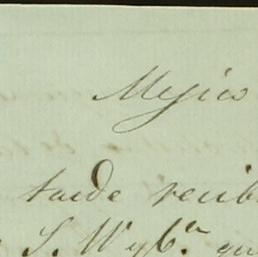 Mejico
tarde recib
S. Wyb.ⁿ qu